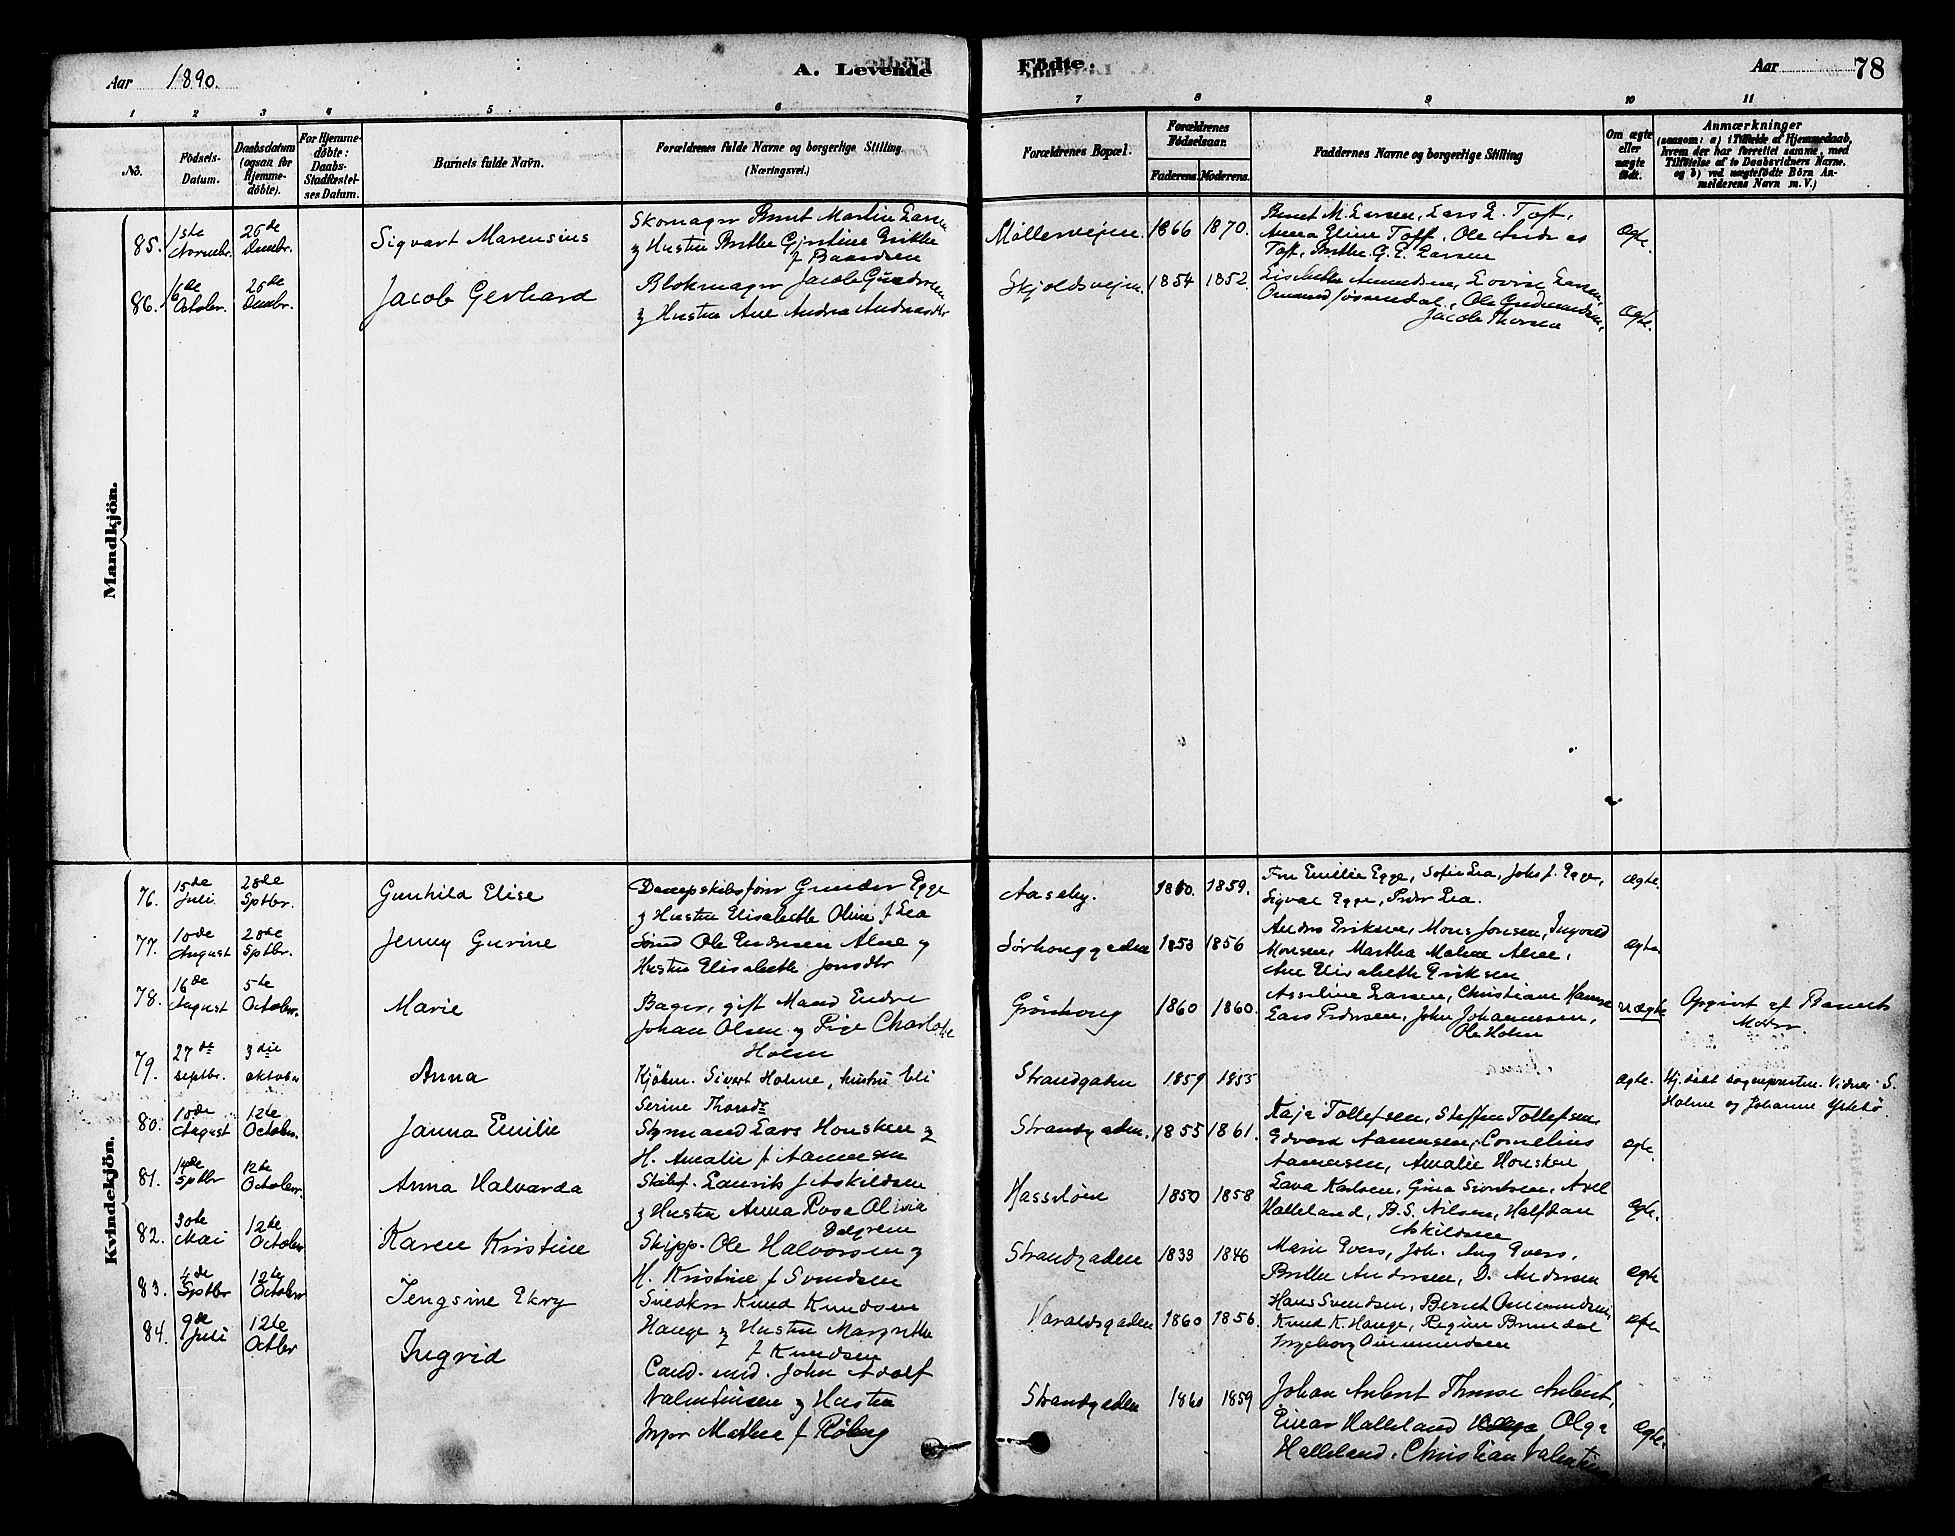 Aar 1890.
A. Levende
Födte.
Aar
78
1 2 3 4 5 6 7 8 9 10 11
No.
Födsels-
Datum.
Daabsdatum
(ogsaa for
Hjemme-
döbte).
For Hjemme-
döbte:
Daabs-
Stadfæstel-
ses Datum.
Barnets fulde Navn.
Forældrenes fulde Navne og borgerlige Stilling
(Næringsvei.)
Forældrenes Bopæl.
Forældrenes
Födselsaar.
Faderens. Moderens.
Faddernes Navne og borgerlige Stilling
Om ægte
eller
uægte
födt.
Anmærkninger
(saasom: a) i Tilfælde af Hjemmedaab,
hvem der har forrettet samme, med
Tilföielse af to Daabsvidners Navne,
og b) ved uægtefödte Börn An-
melderens Navn m. V.)
Mandkjön.
85.
1ste
Novembr.
26de
Decembr.
Sigvart Marensius
Skomager Bernt Martin Larsen
og Hustru Berthe Gjertine Erikke
f Baardsen
Møllerveien 1866 1870.
Bernt M. Larsen, Lars L. Toft,
Anna Eline Toft, Ole Andreas
Toft, Berthe G. E. Larsen
Ægte.
86.
Octobr.
26de
Decembr.
Jacob Gerhard
Blokmager Jacob
og Hustru Ane Andrea Andreasdtr
Skjoldsveien 1854 1852.
Amundsen, Lovise Larsen,
Ole Gudmundsen,
Jacob Thorsen
Ægte.
Kvindekjön.
76.
15de
Juli
28de
Sptbr.
Gunhilda Elise
Dampskibsfører Gunder Egge
og Hustru Elisabeth Oline f Lea
Aaseby. 1859.
Fru Emilie Egge, Sofie Lea, Johs J. Egge,
Sigval Egge, Peder Lea.
Ægte.
77.
10de
August
28de
Sptbr.
Jenny Gurine
Ole Endresen Alne og
Hustru Elisabeth Jonsdtr
Sørhouggaden 1853 1856
Anders Eriksen, Mons Jonsen, Ingvald
Monsen, Martha Malene Alne,
Ane Elisabeth Eriksen
Ægte
78.
16de
August
5te
Octobr.
Marie
Bager, gift Mand Endre
Johan Olsen og Pige Charlotte
Holm
Grønhoug 1860 1860.
Asseline Larsen, Christiane Hansen
Lars Pedersen, John Johannesen,
Ole Holm
uægte
Opgivet af Barnets
Moder.
79.
27de
septbr.
3die
oktober
Anna
Kjøbm. Sivert Holme, hustru Eli
Serine Thorsdr
Strandgaden 1859 1855
ægte.
Hj. døbt sognepresten. Vidner S.
Holme og Johanne Ystebø
80.
10de
August
12te
Octobr.
Janna Emilie
Styrmand Lars Housken og
H. Amalie f Aamensen
Strandgaden 1855 1861.
Kaja Tollefsen, Steffen Tollefsen
Edvard Aamensen, Cornelius
Aamensen, Amalie Housken
ægte.
81.
14de
Sptbr
12te
Octobr.
Anna Halvarda
Laurits J. Askildsen
og Hustru Anna Rosa Olivia
Dalgren
Hasseløen 1850 1858
Lava Karlsen, Gina Sivertsen, Axel
Halleland, B. S. Nilsen, Halfdan
Askildsen
Ægte.
82.
30te
Mai
12te
Octobr
Karen Kristine
Skipp. Ole Halvorsen og
H. Kristine f Svendsen
Strandgaden 1833 1846
Marie Evers, Joh. Aug Evers.
Berthe Andersen, D. Andersen
Ægte
83.
Sptbr
12te
Octobr
Jengsine Ekry
Snedker Knud Knudsen
Hauge og Hustru Margrethe
f Knudsen
Haraldsgaden 1860 1856.
Hans Svendsen, Berent Ommundsen,
Knud K. Hauge, Regine Brundal
Ingeborg Ommundsen
ægte
84.
9de
Juli
12te
Octbr
Ingrid
Cand. med. John Adolf
Valentinsen og Hustru
Inger Mathea f Røberg
Strandgaden 1860 1859
Johan Anbert Therese Anbert,
Einar Halleland Olga
Halleland, Christian Valentinsen
Ægte.